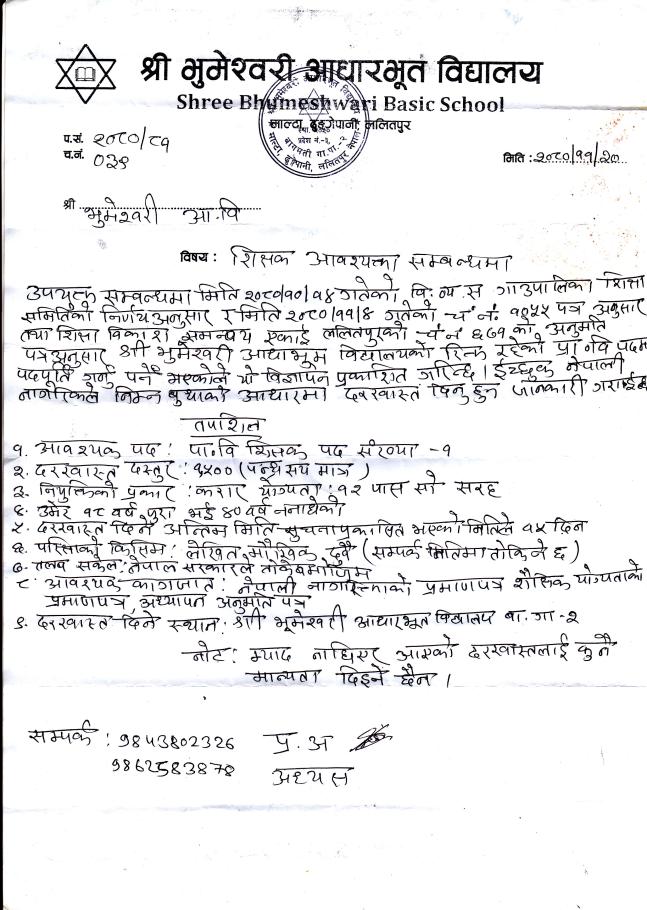 श्री भुमेश्वरी आधारभूत विद्यालय
Shree Bhumeshwari Basic School
माल्टा, ढुङ्गेपानी, ललितपुर
प.सं. २०८०/८१
च.नं. ०३९
मिति : २०८०/११/२०
श्री भुमेश्वरी आ.वि
विषय : शिक्षक आवश्यक्ता सम्बन्धमा
उपयुक्त सम्बन्धमा मिति २०८०/१०/१४ गतेको वि. न्य. स गाउपालिका शिक्षा
समितिको निर्णय अनुसार र मिति २०८०/११/८ गतेको च. नं. १९५५ पत्र अनुसार
तथा शिक्षा विकास समन्वय एकाई ललितपुरको च नं ६७१ को अनुमति
पत्रअनुसार श्री भुमेश्वरी आधाभूम विद्यालयको रिक्त रहेको प्रा वि पदम
पदपूर्ति गर्नु पर्ने भएकोले यो विज्ञापन प्रकाशित गरिन्छ। ईच्छुक नेपाली
नागरिकले निम्न बुधाका आधारमा दरखास्त दिनु हुन जानकारी गराईन्छ
तपाशिल
१. आवश्यक पद : पा.वि शिक्षक पद संख्या - १
२. दरखास्त दस्तुर : १५०० (पन्ध्र सय मात्र)
३. नियुक्तिको प्रकार : करार योग्यता : १२ पास सो सरह
४. उमेर १८ वर्ष पुरा भई ४० वर्ष ननाघेको
५. दरखास्त दिने अन्तिम मिति सुचना प्रकाशित भएको मितिले १५ दिन
६. परिक्षाको किसिम : लेखित, मौखिक दुवै (सम्पर्क मितिमा तोकिने छ)
७. तलव स्केल : नेपाल सरकारले तोके बमोजिम
८ आवश्यक कागजात : नेपाली नागरिकताको प्रमाणपत्र शैक्षिक योग्यताको
प्रमाणपत्र, अध्यापन अनुमति पत्र
९. दरखास्त दिने स्थान : श्री भूमेश्वरी आधारभूत विद्यालय बा. गा - २
नोट : म्याद नाघिएर आएको दरखास्तलाई कुनै
मान्यता दिइने छैन ।
सम्पर्क : 9843802326 प्र. अ
9862583878 अध्यक्ष